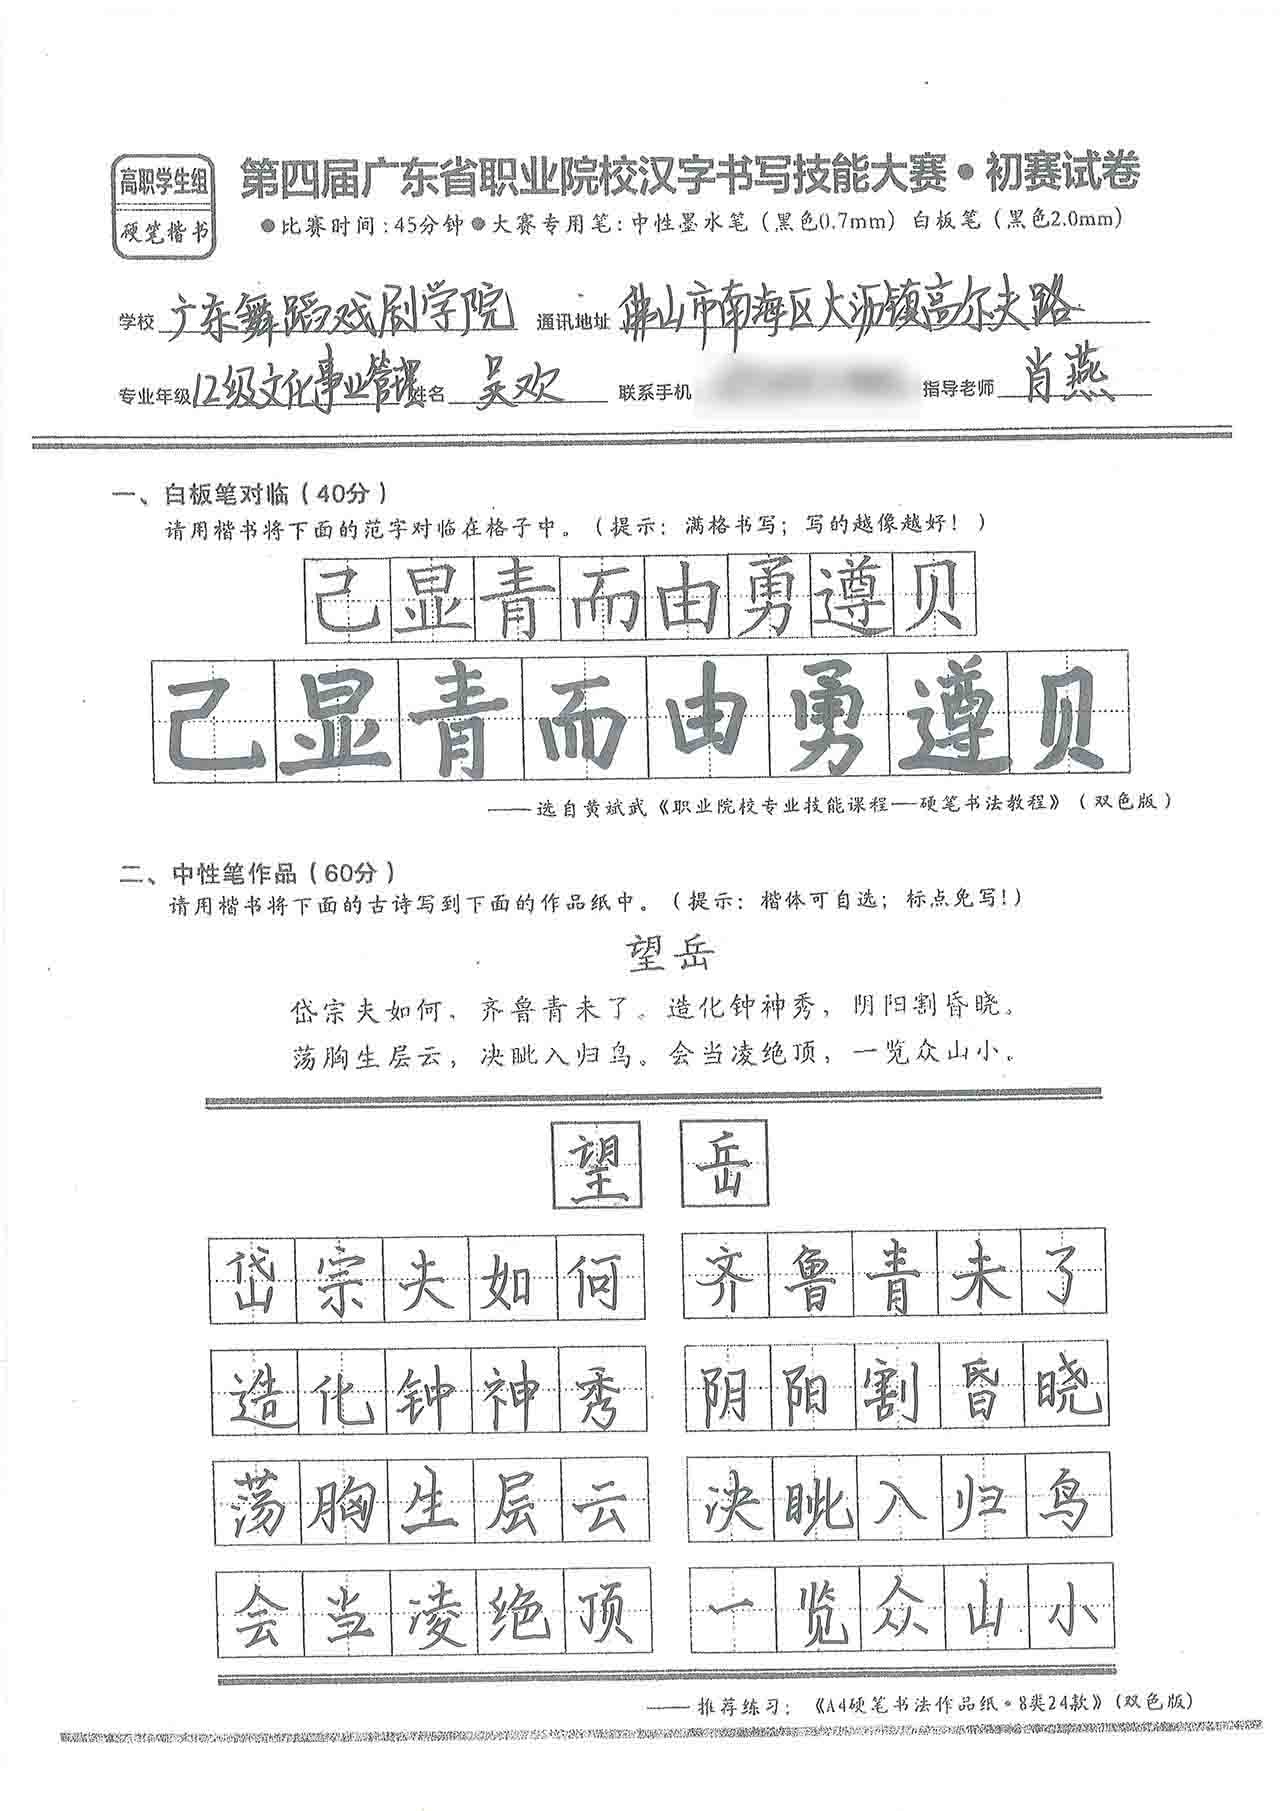 高职学生组
硬笔楷书
第四届广东省职业院校汉字书写技能大赛•初赛试卷
●比赛时间:45分钟●大赛专用笔:中性墨水笔(黑色0.7mm) 白板笔(黑色2.0mm)
学校 广东舞蹈戏剧学院 通讯地址 佛山市南海区大沥镇高尔夫路
专业年级 12级文化事业管理 姓名 吴欢 联系手机 指导老师 肖燕
一、白板笔对临(40分)
请用楷书将下面的范字对临在格子中。(提示:满格书写;写的越像越好!)
己显青而由勇遵贝
己显青而由勇遵贝
——选自黄斌武《职业院校专业技能课程—硬笔书法教程》(双色版)
二、中性笔作品(60分)
请用楷书将下面的古诗写到下面的作品纸中。(提示:楷体可自选;标点免写!)
望岳
岱宗夫如何,齐鲁青未了。造化钟神秀,阴阳割昏晓。
荡胸生层云,决眦入归鸟。会当凌绝顶,一览众山小。
望 岳
岱宗夫如何 齐鲁青未了
造化钟神秀 阴阳割昏晓
荡胸生层云 决眦入归鸟
会当凌绝顶 一览众山小
——推荐练习:《A4硬笔书法作品纸•8类24款》(双色版)